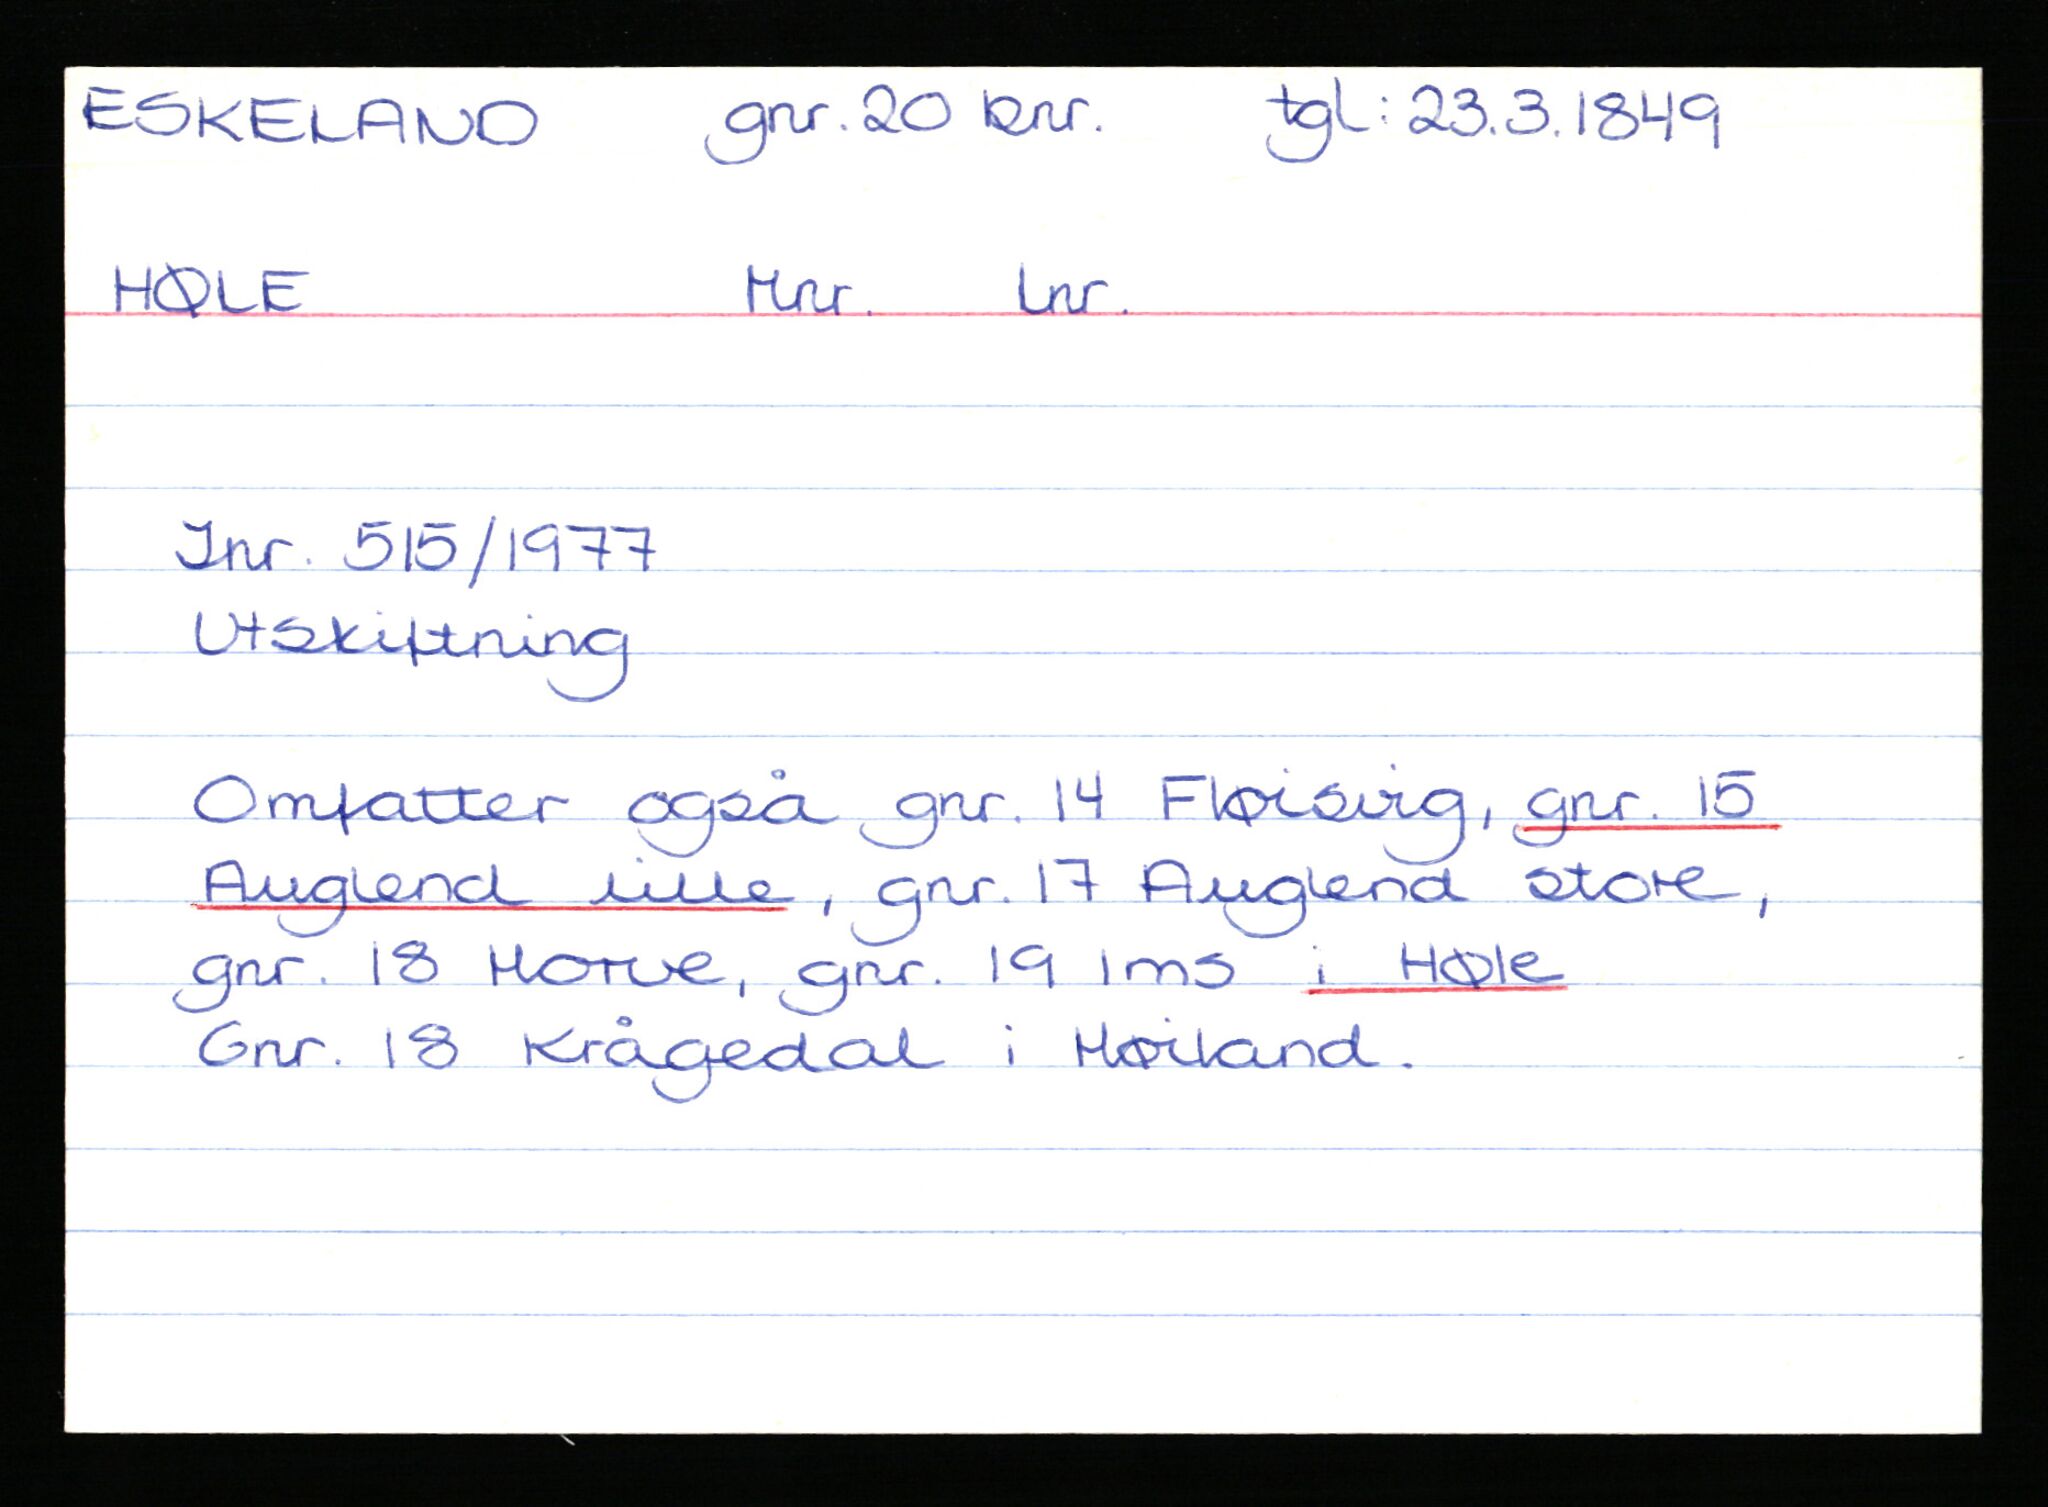 ESKELAND gnr. 20 bnr. tgl: 23.3.1849
HØLE Mnr. Lnr.
Jnr. 515/1977
Utskiftning
Omfatter også gnr. 14 Fløisvig, gnr. 15
Auglend lille, gnr. 17 Auglend store,
gnr. 18 Horve, gnr. 19 Ims i Høle
Gnr. 18 Krågedal i Høiland.